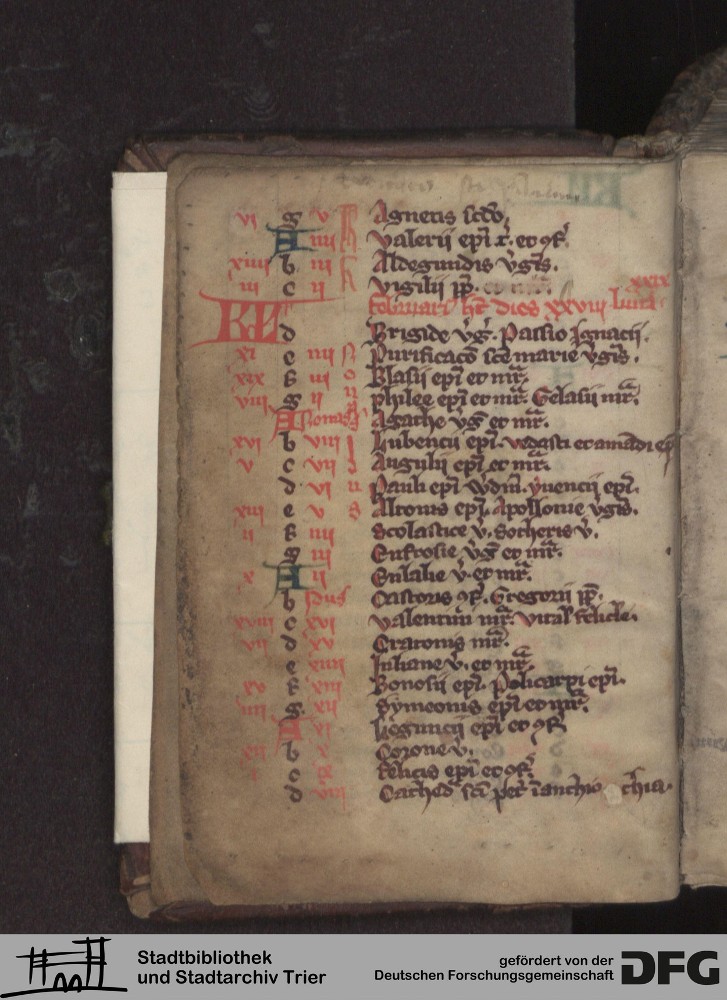 vi g v k Agnetis scdo
A iiii k Valerii epi t. et gf.
xiiii b iii k Aldegundis vgis.
iii c ii Vigilii pp. et mr.
xxix
KL februari' ht dies xxviii Luna
d Brigide vg. Passio Ignacii.
xi e iiii N Purificaco sce marie vgis.
xix f iii o Blasii epi et mr.
viii g ii n philee epi et mr. Gelasii mr.
A Nonas Agathe vg et mr.
xvi b viii I Lubencii epi. vedasti et amadi ep
v c vii d Auguli epi et mr.
d vi u Pauli epi vdni. yuencii epi.
xiii e v s Altonis epi. Apollonie vgis.
ii f iiii Scolastice v. Sotheris v.
g iii Eufrosie vg et mr.
x A ii Eulalie v. et mr.
b Idus Castoris gf. Gregorii pp.
xviii c xvi Valentini mr. Vital' felicle.
vii d xv Cratonis mr.
e xiiii Iuliane v. et mr.
xv f xiii Bonosii epi. Policarpi epi.
iiii g xii Symeonis epi et mr.
A xi Leguncii epi et gf
xii b x Corone v.
i c ix felicis epi et gf.
d viii Cathed sci pet' i anthio chia.
Stadtbibliothek
und Stadtarchiv Trier
gefördert von der
Deutschen Forschungsgemeinschaft
DFG